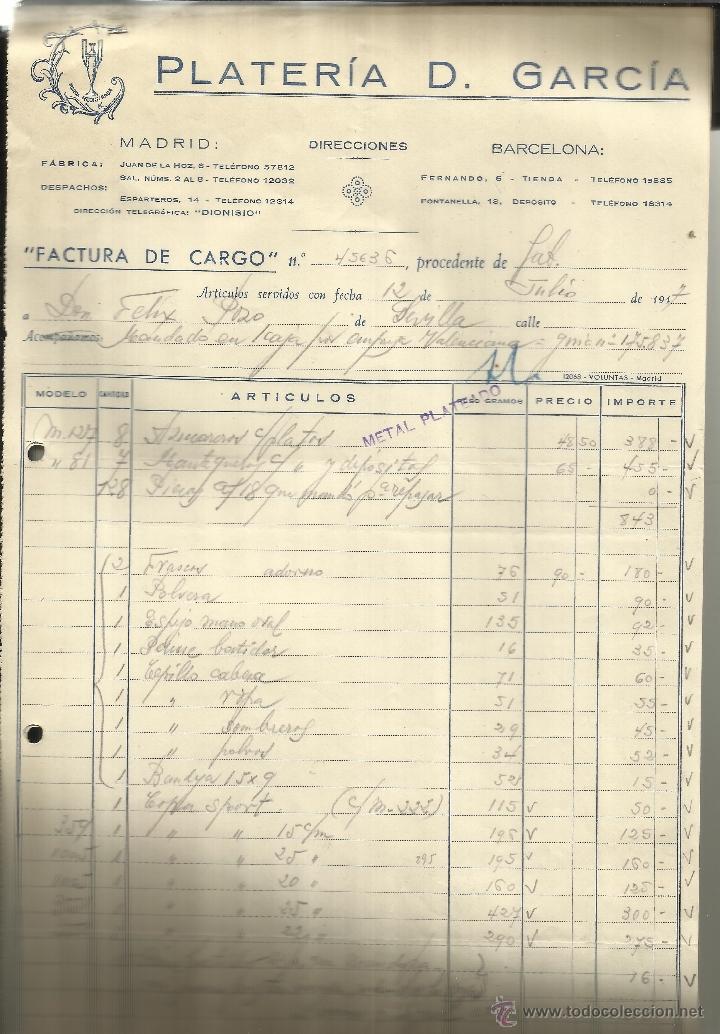 PLATERÍA D. GARCÍA
MADRID:
DIRECCIONES
BARCELONA:
FÁBRICA: JUAN DE LA HOZ, 8 - TELÉFONO 57812
SAL, NÚMS. 2 AL 8 - TELÉFONO 12032
DESPACHOS:
ESPARTEROS, 14 - TELÉFONO 12314
DIRECCIÓN TELEGRÁFICA: "DIONISIO"
FERNANDO, 6 - TIENDA - TELÉFONO 15885
FONTANELLA, 18, DEPÓSITO - TELÉFONO 18314
"FACTURA DE CARGO" n.º 45636, procedente de Fab.
Artículos servidos con fecha 12 de Julio de 1947
a Don Felix Pozo de Sevilla calle
Acompañamos: Mandado en 1 caja por Valenciana = 175837
12068 - VOLUNTAS - Madrid
MODELO CANTIDAD ARTICULOS PESO GRAMOS PRECIO IMPORTE
METAL PLATEADO
M. 127 8 Azucareros c/platos 48 50 388 -
" 81 7 Mantequeras c/ " y 65 - 455 -
128 Piezas que mandó pª repasar 0 -
843
2 Frascos adorno 76 90 - 180 -
1 Polvera 51 90 -
1 Espejo mano oval 135 92 -
1 Peine batidor 16 35 -
1 Cepillo cabeza 71 60 -
1 " ropa 51 55 -
1 " sombreros 29 45 -
1 " polvos 34 52 -
1 Bandeja 15x9 52 15 -
1 Copa sport (c/M-222) 115 50 -
359 1 " " 15 c/m 195 125 -
1 " " 25 " 195 195 160 -
1 " " 20 " 160 125 -
1 " " 25 " 427 300 -
" " 22 " 290 275 -
16 -
todocoleccion
www.todocoleccion.net